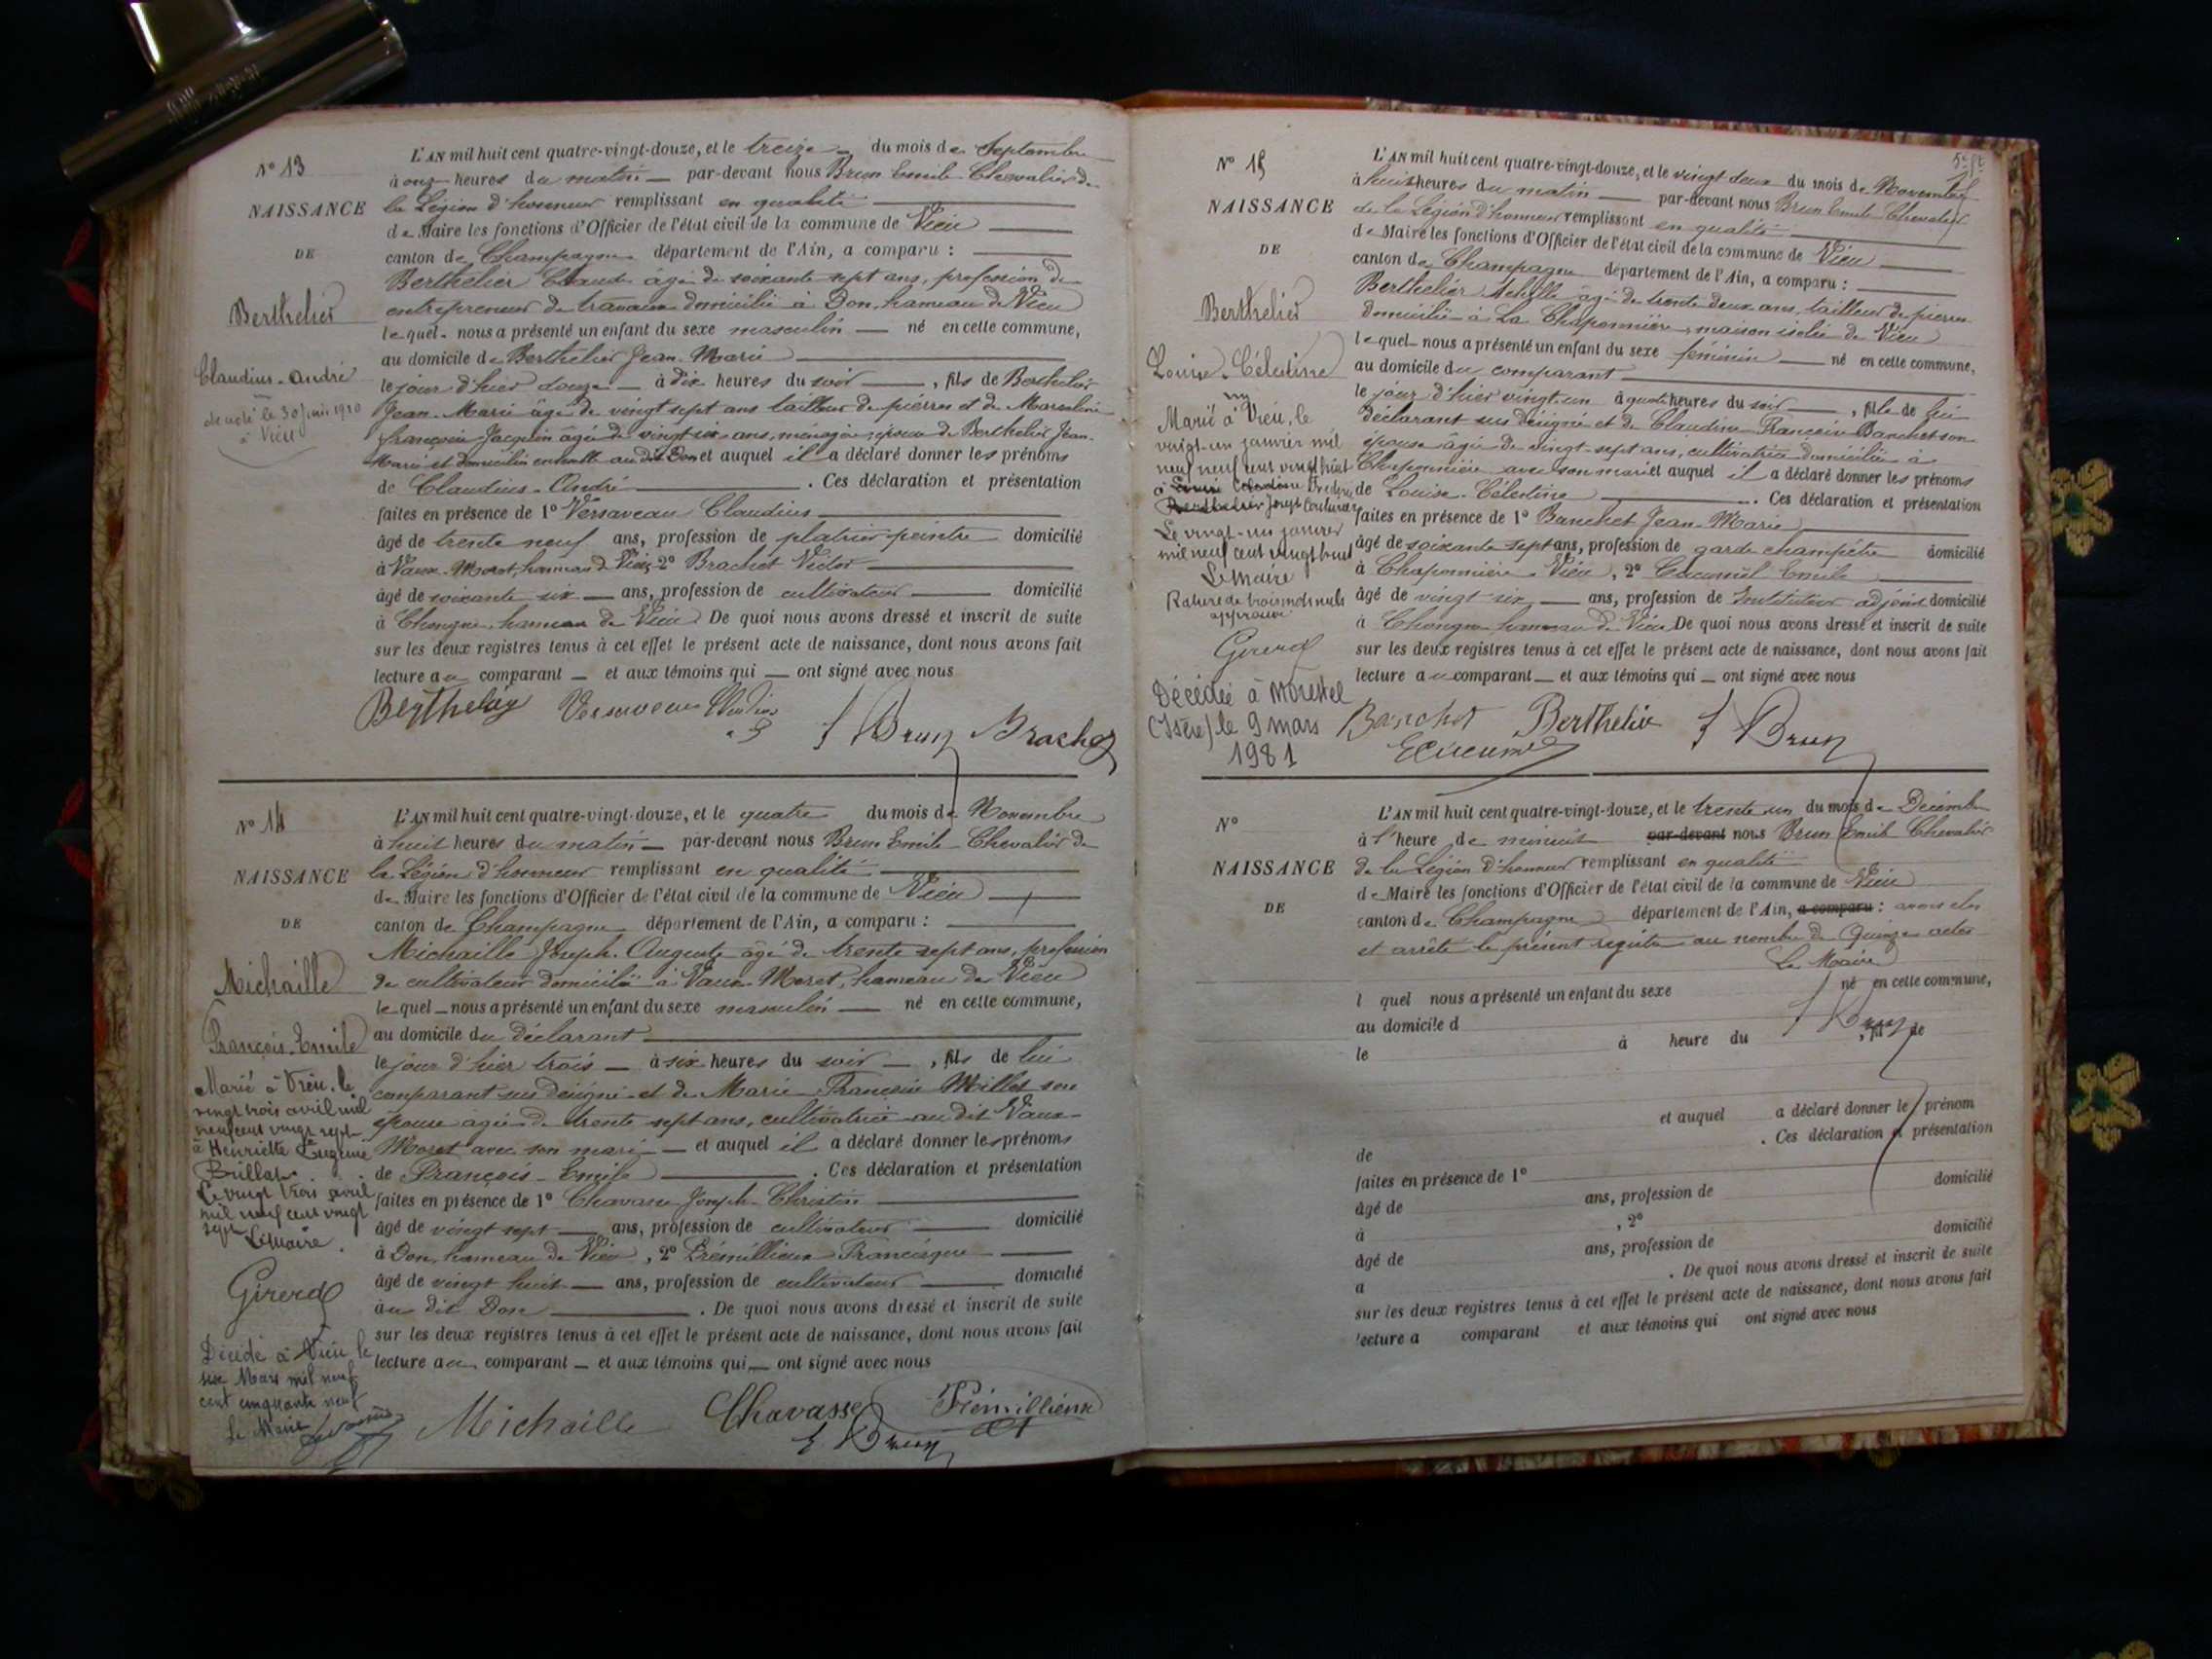 N° 13
NAISSANCE
DE
Berthelier
Claudius-André
décédé le 30 juin 1920
à Vieu
L'AN mil huit cent quatre-vingt-douze, et le treize du mois de Septembre
à onze heures du matin par-devant nous Brun Emile Chevalier de
la Légion d'honneur remplissant en qualité
de Maire les fonctions d'Officier de l'état civil de la commune de Vieu
canton de Champagne département de l'Ain, a comparu :
Berthelier Claude âgé de soixante sept ans, profession de
entrepreneur de travaux domicilié à Don, hameau de Vieu
lequel nous a présenté un enfant du sexe masculin né en cette commune,
au domicile de Berthelier Jean-Marie
le jour d'hier douze à dix heures du soir , fils de Berthelier
Jean-Marie âgé de vingt sept ans tailleur de pierres et de Marceline
françoise Jacquin âgée de vingt six ans, ménagère, épouse de Berthelier Jean-
Marie et domiciliés ensemble au dit Don et auquel il a déclaré donner les prénoms
de Claudius-André . Ces déclaration et présentation
faites en présence de 1° Versaveau Claudius
âgé de trente neuf ans, profession de platrier peintre domicilié
à Vaux-Moret, hameau de Vieu, 2° Brachet Victor
âgé de soixante six ans, profession de cultivateur domicilié
à Chongne, hameau de Vieu De quoi nous avons dressé et inscrit de suite
sur les deux registres tenus à cet effet le présent acte de naissance, dont nous avons fait
lecture au comparant et aux témoins qui ont signé avec nous
Berthelier Versaveau Claudius E Brun Brachet
N° 14
NAISSANCE
DE
Michaille
François-Emile
Marié à Vieu, le
vingt trois avril mil
neuf cent vingt sept
à Henriette Eugénie
Brillat.
Le vingt trois avril
mil neuf cent vingt
sept
Le Maire.
Girerd
Décédé à Vieu le
six Mars mil neuf
cent cinquante neuf
Le Maire
L'AN mil huit cent quatre-vingt-douze, et le quatre du mois de Novembre
à huit heures du matin par-devant nous Brun Emile Chevalier de
la Légion d'honneur remplissant en qualité
de Maire les fonctions d'Officier de l'état civil de la commune de Vieu
canton de Champagne département de l'Ain, a comparu :
Michaille Joseph-Auguste âgé de trente sept ans, profession
de cultivateur domicilié à Vaux-Moret, hameau de Vieu
lequel nous a présenté un enfant du sexe masculin né en cette commune,
au domicile du déclarant
le jour d'hier trois à six heures du soir , fils de lui
comparant sus désigné et de Marie-Françoise Millet son
épouse âgée de trente sept ans, cultivatrice au dit Vaux-
Moret avec son mari et auquel il a déclaré donner les prénoms
de François-Emile . Ces déclaration et présentation
faites en présence de 1° Chavasse Joseph-Christin
âgé de vingt sept ans, profession de cultivateur domicilié
à Don, hameau de Vieu, 2° Prémillieux Francisque
âgé de vingt huit ans, profession de cultivateur domicilié
au dit Don . De quoi nous avons dressé et inscrit de suite
sur les deux registres tenus à cet effet le présent acte de naissance, dont nous avons fait
lecture au comparant et aux témoins qui ont signé avec nous
Michaille Chavasse Prémillieux
E Brun
N° 15
NAISSANCE
DE
Berthelier
Louise-Célestine
Marié à Vieu, le
vingt-un janvier mil
neuf neuf cent vingt huit
Joseph Couturier
Le vingt-un janvier
mil neuf cent vingt huit
Le Maire
Rature de trois mots nuls
approuvé
Girerd
Décédée à Morestel
(Isère) le 9 mars
1981
L'AN mil huit cent quatre-vingt-douze, et le vingt deux du mois de Novembre
à huit heures du matin par-devant nous Brun Emile Chevalier
de la Légion d'honneur remplissant en qualité
de Maire les fonctions d'Officier de l'état civil de la commune de Vieu
canton de Champagne département de l'Ain, a comparu :
Berthelier Achille âgé de trente deux ans, tailleur de pierres
domicilié à La Chaponnière, maison isolée de Vieu
lequel nous a présenté un enfant du sexe féminin né en cette commune,
au domicile du comparant
le jour d'hier vingt-un à quatre heures du soir , fille de lui
déclarant sus désigné et de Claudine Françoise Banchet son
épouse âgée de vingt-sept ans, cultivatrice domiciliée à
Chaponnière avec son mari et auquel il a déclaré donner les prénoms
de Louise-Célestine . Ces déclaration et présentation
faites en présence de 1° Banchet Jean-Marie
âgé de soixante sept ans, profession de garde champêtre domicilié
à Chaponnière-Vieu, 2° Cucumel Emile
âgé de vingt six ans, profession de Instituteur adjoint domicilié
à Chongne hameau de Vieu De quoi nous avons dressé et inscrit de suite
sur les deux registres tenus à cet effet le présent acte de naissance, dont nous avons fait
lecture au comparant et aux témoins qui ont signé avec nous
Banchet Berthelier E Brun
E Cucumel
N°
NAISSANCE
DE
L'AN mil huit cent quatre-vingt-douze, et le trente un du mois de Décembre
à l'heure de minuit par-devant nous Brun Emile Chevalier
de la Légion d'honneur remplissant en qualité
de Maire les fonctions d'Officier de l'état civil de la commune de Vieu
canton de Champagne département de l'Ain, a comparu : avons clos
et arrêté le présent registre au nombre de Quinze actes
Le Maire
l quel nous a présenté un enfant du sexe né en cette commune,
au domicile d E Brun
le à heure du , fil de
et auquel a déclaré donner le prénom
de . Ces déclaration et présentation
faites en présence de 1°
âgé de ans, profession de domicilié
à , 2°
âgé de ans, profession de domicilié
a . De quoi nous avons dressé et inscrit de suite
sur les deux registres tenus à cet effet le présent acte de naissance, dont nous avons fait
lecture a comparant et aux témoins qui ont signé avec nous